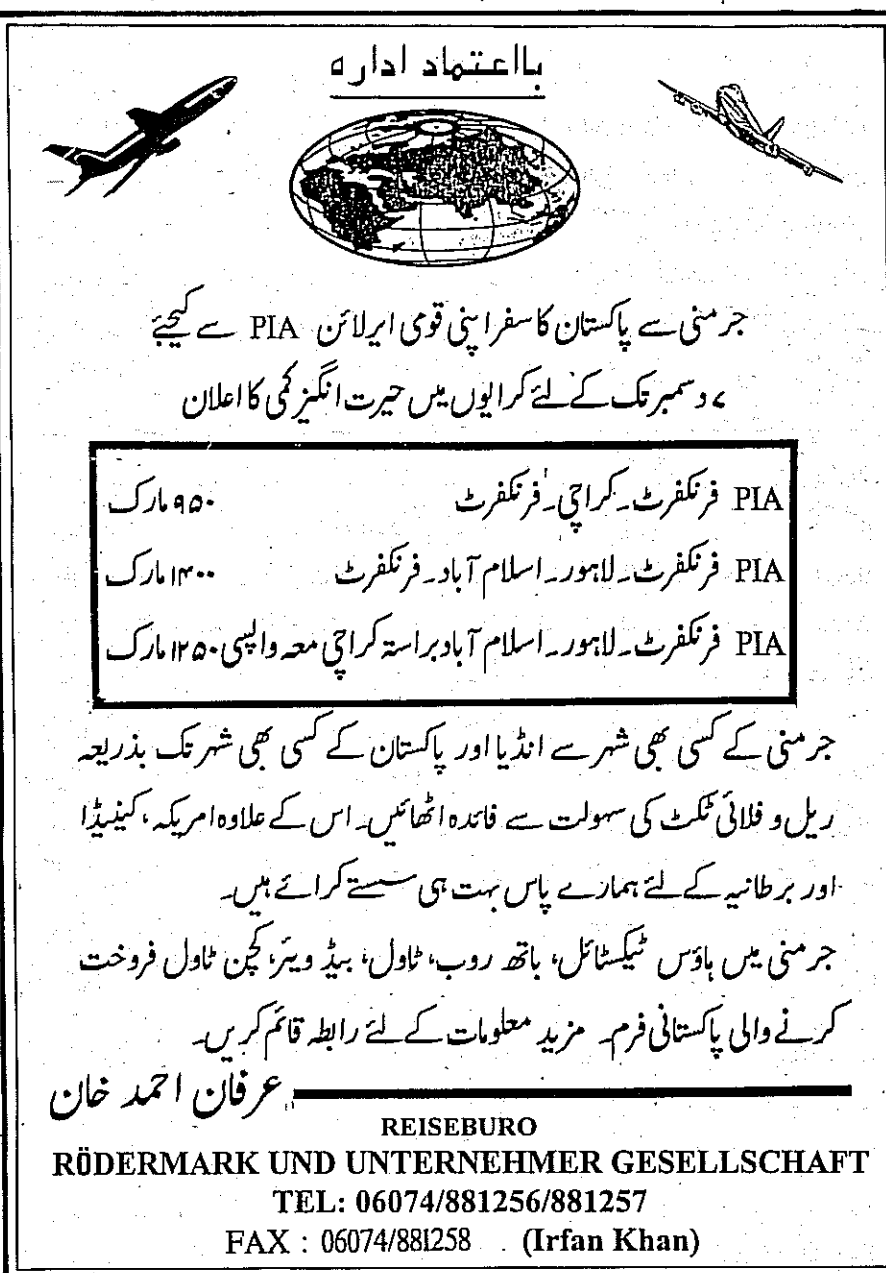 بااعتماد ادارہ
جرمنی سے پاکستان کا سفر اپنی قومی ایرلائن PIA سے کیجئے
۷ دسمبر تک کے لئے کرایوں میں حیرت انگیز کمی کا اعلان
PIA فرنکفرٹ۔ کراچی۔ فرنکفرٹ ۹۵۰ مارک
PIA فرنکفرٹ۔ لاہور۔ اسلام آباد۔ فرنکفرٹ ۱۴۰۰ مارک
PIA فرنکفرٹ۔ لاہور۔ اسلام آباد براستہ کراچی معہ واپسی ۱۲۵۰ مارک
جرمنی کے کسی بھی شہر سے انڈیا اور پاکستان کے کسی بھی شہر تک بذریعہ
ریل و فلائی ٹکٹ کی سہولت سے فائدہ اٹھائیں۔ اس کے علاوہ امریکہ، کینیڈا
اور برطانیہ کے لئے ہمارے پاس بہت ہی سستے کرائے ہیں۔
جرمنی میں ہاؤس ٹیکسٹائل، باتھ روب، ٹاول، بیڈ ویئر، کچن ٹاول فروخت
کرنے والی پاکستانی فرم۔ مزید معلومات کے لئے رابطہ قائم کریں۔
عرفان احمد خان
REISEBURO
RÖDERMARK UND UNTERNEHMER GESELLSCHAFT
TEL: 06074/881256/881257
FAX : 06074/881258 (Irfan Khan)